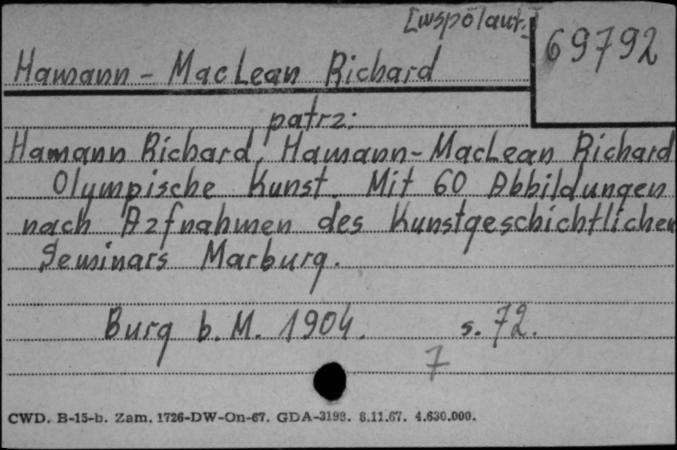 [współaut.]
69792
Hamann - MacLean Richard
patrz:
Hamann Richard, Hamann-MacLean Richard
Olympische Kunst. Mit 60 Abbildungen
nach Azfnahmen des Kunstgeschichtlichen
Seminars Marburg.
Burg b. M. 1904. s. 72.
7
CWD. B-15-b. Zam. 1726-DW-On-67. GDA-3198. 8.11.67. 4.630.000.